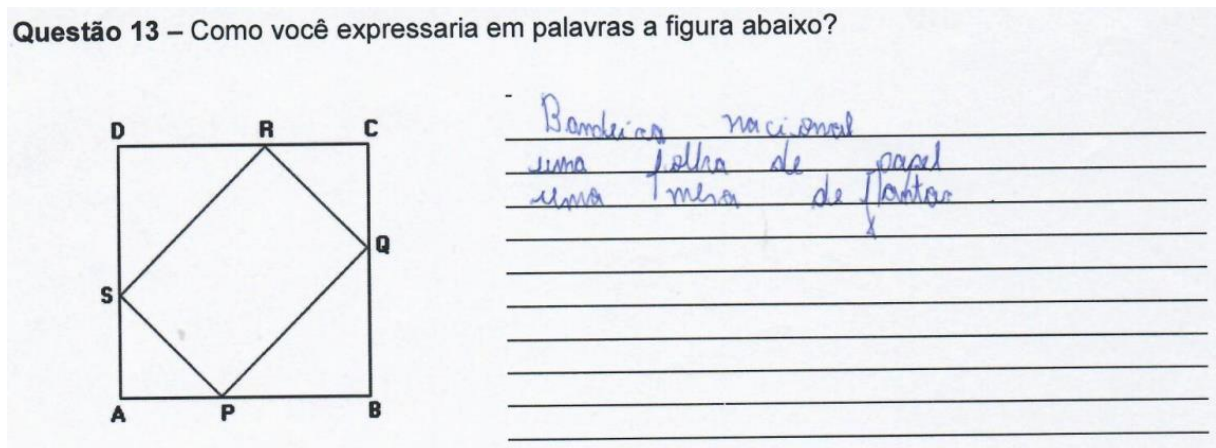 Questão 13 – Como você expressaria em palavras a figura abaixo?
D R C
Bandeira nacional
uma folha de papel
uma mesa de jantar
Q
S
A P B